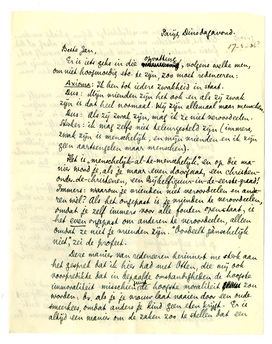 Parijs Dinsdagavond.
Beste Jan,
Er is iets gehs in die opvatting, volgens welke men,
om niet hoogmoedig te zijn, zoo moet redeneeren:
Axioma: Ik ben tot iedere zwakheid in staat.
Dus: Mijn vrienden zijn het ook en als zij zwak
zijn, is dat heel normaal. Wij zijn allemaal maar mensche
Dus: als zij zwak zijn, mag ik ze niet veroordeelen.
ik mag zelfs niet teleurgesteld zijn (immers,
zwak zijn is menschelijk, en mijn vrienden en ik zijn
geen aartsengelen maar menschen).
Het is „menschelijk-al-te-menschelijk", en op die ma-
nier word je, als je maar even doorgaat, een christen-
onder-de-christenen, een Bijbelfiguur-in-de-eerste-graad!
Immers: waarom je vrienden niet veroordeelen en ande-
ren wel? Als het ongepast is je vrienden te veroordeelen,
omdat je zelf immers voor alle fouten openstaat, is
het even ongepast om anderen te veroordeelen, alleen
omdat ze niet je vrienden zijn. "Oordeelt menschelijk
niet", zei de profeet.
Deze manier van redeneeren herinnert me sterk aan
het gesprek dat ik hier had met Otten, die mij ook
voorpraatte dat in bepaalde omstandigheden de hoogste
immoraliteit misschien juist de hoogste moraliteit zou
worden: bv. als je je vrouw laat naaien door een oude
smeerkees, omdat anders je kind geen eten krijgt. Er is
altijd een manier om de zaken zoo te stellen dat een